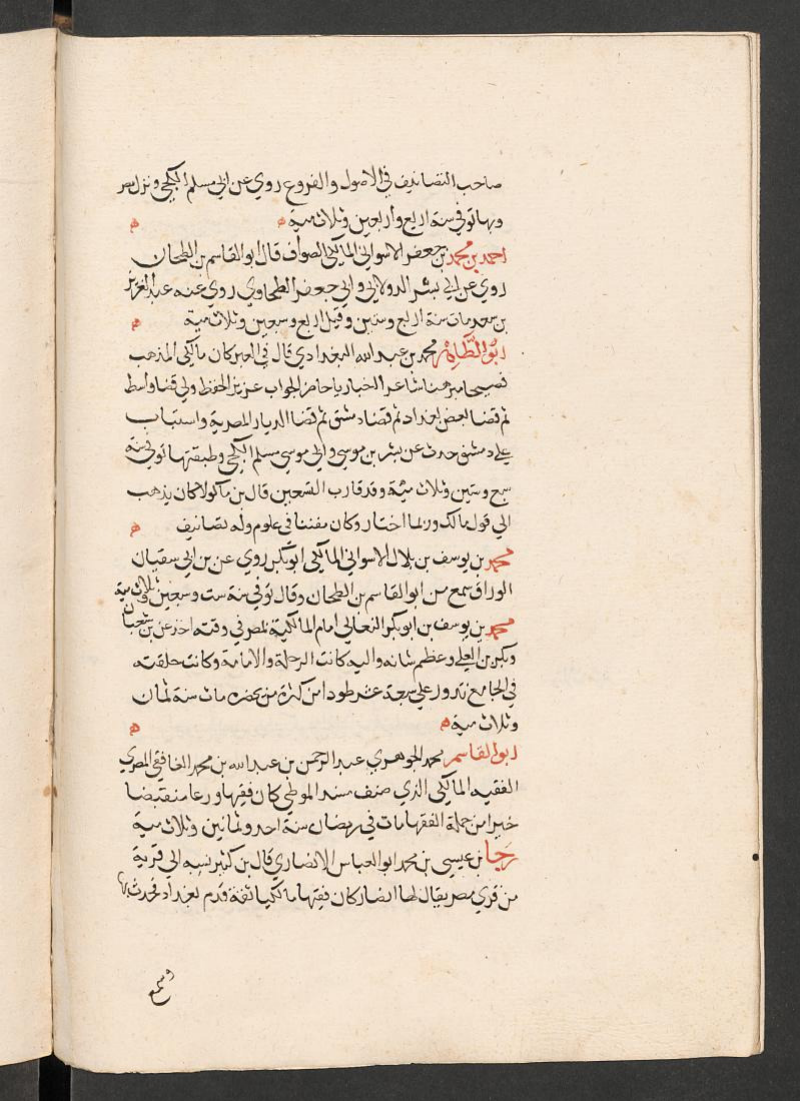 صاحب التصانيف في الاصول والفروع روي عن ابي مسلم الكجي ونزل مصر
وبها توفي سنة اربع واربعين وثلاث مية ه ه
احمد بن محمد بن جعفر الاسواني المالكي الصواف قال ابو القاسم بن الطحان
روي عن ابي بشر الدولابي وابي جعفر الطحاوي روي عنه عبد العزيز
بن سعد مات سنة اربع وستين وقيل اربع وسبعين وثلاث مية ه
ابو الطاهر محمد بن عبد الله البغدادي قال في العبر كان مالكي المذهب
فصيحا شاعرا اخباريا حاضر الجواب عزيز الحفظ ولي قضا واسط
ثم قضا بعض بغداد ثم قضا دمشق ثم قضا الديار المصرية واستناب
علي دمشق حدث عن بشر بن موسي وابي موسي مسلم الكجي وطبقتها توفي سنة
سبع وستين وثلاث مية وقد قارب التسعين قال بن ماكولا كان يذهب
الي قول مالك وربما اختار وكان مفننا في علوم وله تصانيف ه
محمد بن يوسف بن بلال الاسواني المالكي ابو بكر روي عن بن ابي سفيان
الوراق سمع من ابو القاسم بن الطحان وقال توفي سنة ست وسبعين وثلاث مية
محمد بن يوسف بن ابو بكر النعالي امام المالكية بمصر في وقته اخذ عن بن شعبان
وبكر بن العلي وعظم شانه واليه كانت الرحلة والامامة وكانت حلقته
في الجامع تدور علي سبعة عشر عمودا من كثرة من يحضره مات سنة ثمان
وثلاث مية ه ه
ابو القاسم محمد الجوهري عبد الرحمن بن عبد الله بن محمد الغافقي المصري
الفقيه المالكي الذي صنف مسند الموطي كان فقيها ورعا منقبضا
خيرا من جملة الفقها مات في رمضان سنة احد وثمانين وثلاث مية
رجا بن عيسي بن محمد ابو العباس الانصاري قال بن كثير نسبه الي قرية
من قري مصر يقال لها انصار كان فقيها مالكيا ثقة قدم بغداد فحدث بها
وسمع